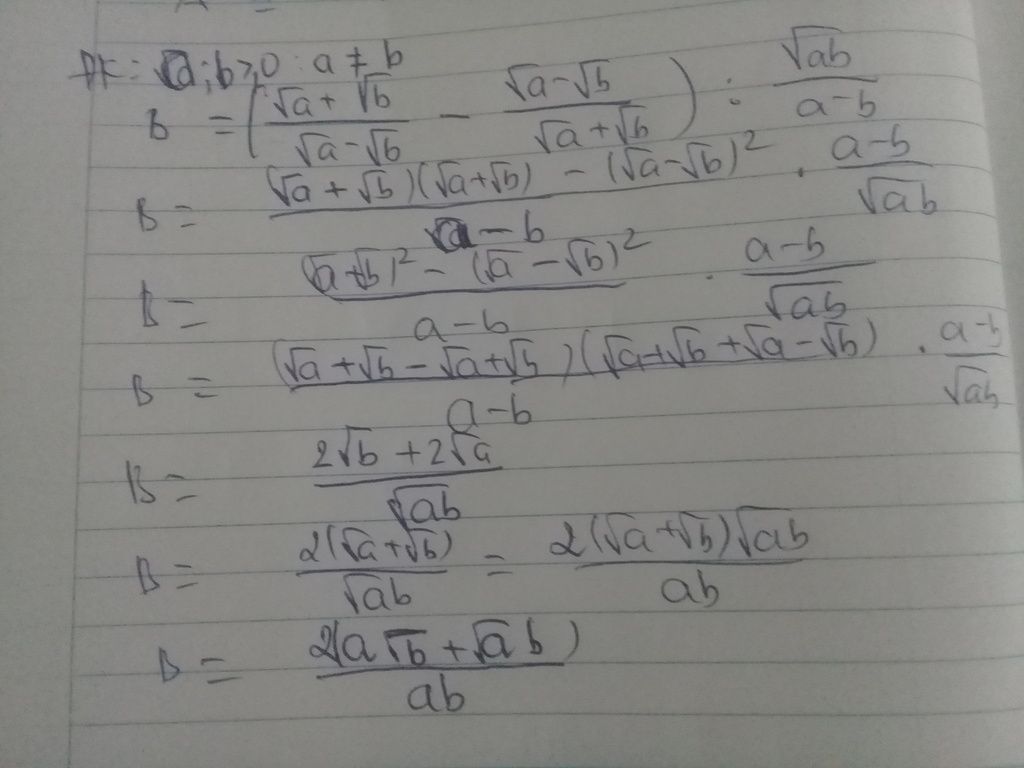 ĐK: a; b > 0 : a ≠ b
B = (\frac{√a + √b}{√a - √b} - \frac{√a - √b}{√a + √b}) : \frac{√ab}{a - b}
B = \frac{(√a + √b)(√a + √b) - (√a - √b)^2}{a - b} . \frac{a - b}{√ab}
B = \frac{(√a + √b)^2 - (√a - √b)^2}{a - b} . \frac{a - b}{√ab}
B = \frac{(√a + √b - √a + √b)(√a + √b + √a - √b)}{a - b} . \frac{a - b}{√ab}
B = \frac{2√b + 2√a}{√ab}
B = \frac{2(√a + √b)}{√ab} = \frac{2(√a + √b)√ab}{ab}
B = \frac{2(a√b + √a b)}{ab}